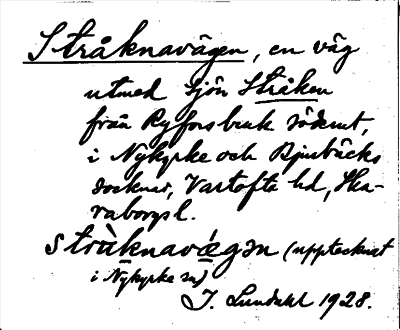 Stråknavägen, en väg
utmed sjön Stråken
från Ryfors bruk söderut,
i Nykyrke och Bjurbäcks
socknar, Vartofta hd, Ska-
raborgs l.
strùknavǽgən (upptecknat
i Nykyrke sn)
J. Lundahl 1928.